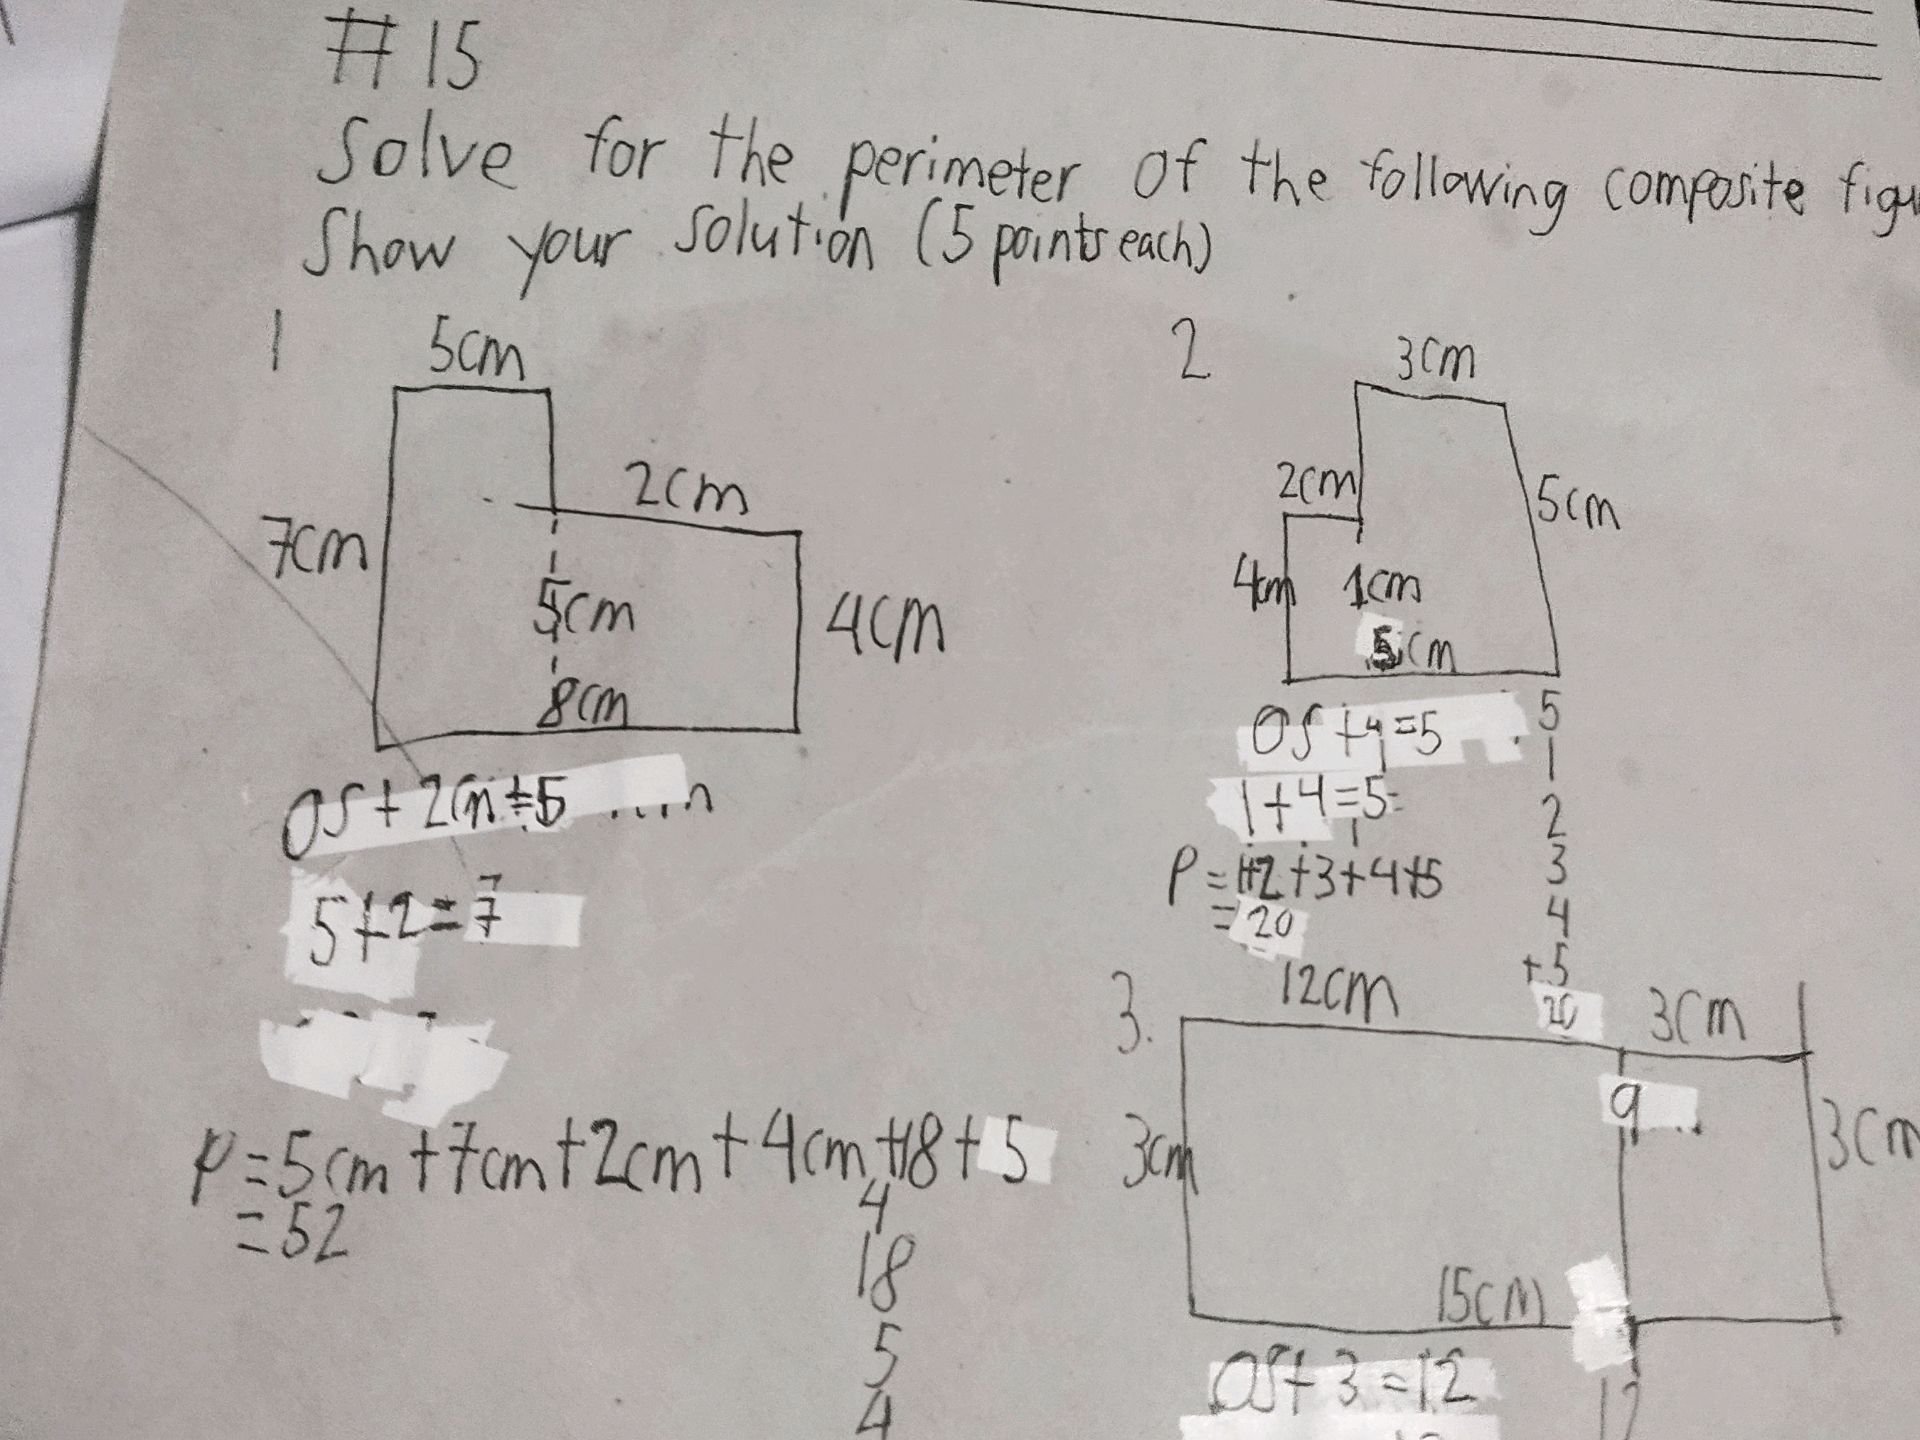 #15
Solve for the perimeter of the following composite
Show your solution (5 points each)
1
5cm
7cm
2cm
5cm
4cm
8cm
OS + 2cm = 5
5+2=7
P=5cm+7cm+2cm+4cm+18+5
=52
4
18
5
4
2
3cm
2cm
5cm
4cm
1cm
5cm
OS+4=5
1+4=5
P=1+2+3+4+5
=20
5
1
2
3
4
+5
20
3.
12cm
3cm
9
3cm
3cm
15cm
OS+3=12